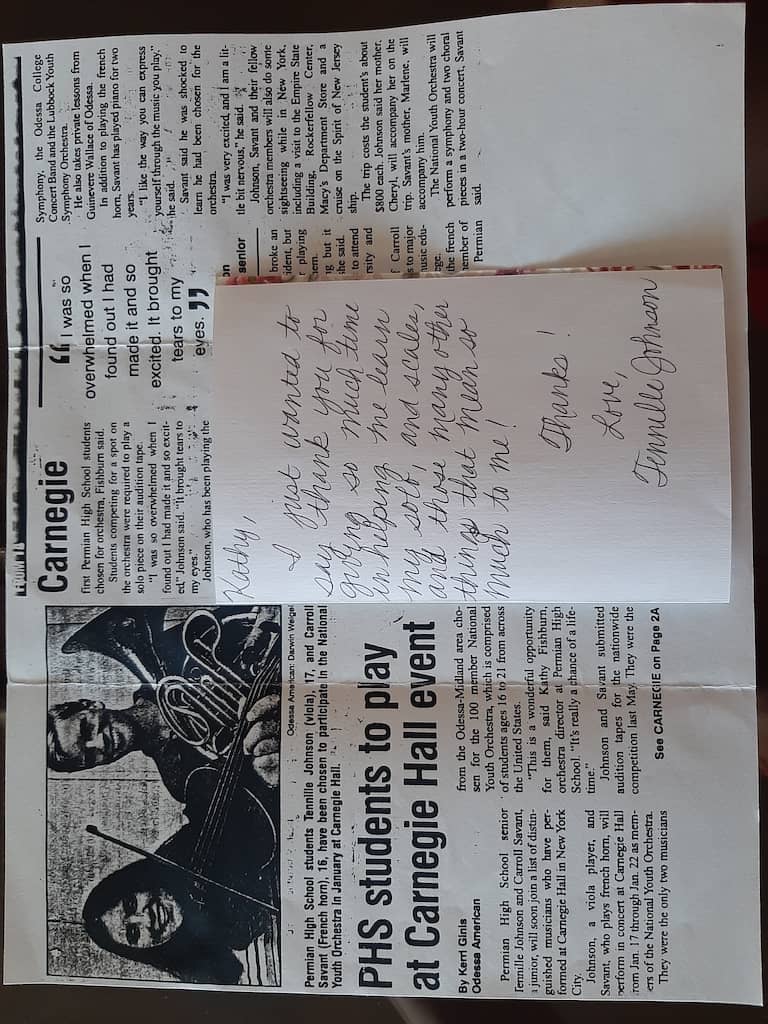 Odessa American: Darwin Weigel
Permian High School students Tennille Johnson (viola), 17, and Carroll
Savant (French horn), 16, have been chosen to participate in the National
Youth Orchestra in January at Carnegie Hall.
PHS students to play
at Carnegie Hall event
By Kerri Ginis
Odessa American
Permian High School senior
Tennille Johnson and Carroll Savant,
a junior, will soon join a list of distin-
guished musicians who have per-
formed at Carnegie Hall in New York
City.
Johnson, a viola player, and
Savant, who plays french horn, will
perform in concert at Carnegie Hall
from Jan. 17 through Jan. 22 as mem-
ers of the National Youth Orchestra.
They were the only two musicians
from the Odessa-Midland area cho-
sen for the 100 member National
Youth Orchestra, which is comprised
of students ages 16 to 21 from across
the United States.
"This is a wonderful opportunity
for them, said Kathy Fishburn,
orchestra director at Permian High
School. "It's really a chance of a life-
time."
Johnson and Savant submitted
audition tapes for the nationwide
competition last May. They were the
See CARNEGIE on Page 2A
FROM 1A
Carnegie
first Permian High School students
chosen for orchestra, Fishburn said.
Students competing for a spot on
the orchestra were required to play a
solo piece on their audition tape.
"I was so overwhelmed when I
found out I had made it and so excit-
ed" Johnson said. "It brought tears to
my eyes."
Johnson, who has been playing the
“I was so
overwhelmed when I
found out I had
made it and so
excited. It brought
tears to my
eyes.”
on
senior
broke an
ident, but
playing
hem.
ng but it
he said.
to attend
rsity and
f Carroll
s to major
usic edu-
ge.
the french
ember of
Permian
Symphony, the Odessa College
Concert Band and the Lubbock Youth
Symphony Orchestra.
He also takes private lessons from
Guinevere Wallace of Odessa.
In addition to playing the french
horn, Savant has played piano for two
years.
"I like the way you can express
yourself through the music you play,"
he said.
Savant said he was shocked to
learn he had been chosen for the
orchestra.
"I was very excited, and I am a lit-
tle bit nervous," he said.
Johnson, Savant and their fellow
orchestra members will also do some
sightseeing while in New York,
including a visit to the Empire State
Building, Rockerfellow Center,
Macy's Department Store and a
cruise on the Spirit of New Jersey
ship.
The trip costs the student's about
$800 each. Johnson said her mother,
Cheryl, will accompany her on the
trip. Savant's mother, Marlene, will
accompany him.
The National Youth Orchestra will
perform a symphony and two choral
pieces in a two-hour concert, Savant
said.
Kathy,
I just wanted to
say thank you for
giving so much time
in helping me learn
my solo and scales,
and those many other
things that mean so
much to me!
Thanks!
Love,
Tennille Johnson